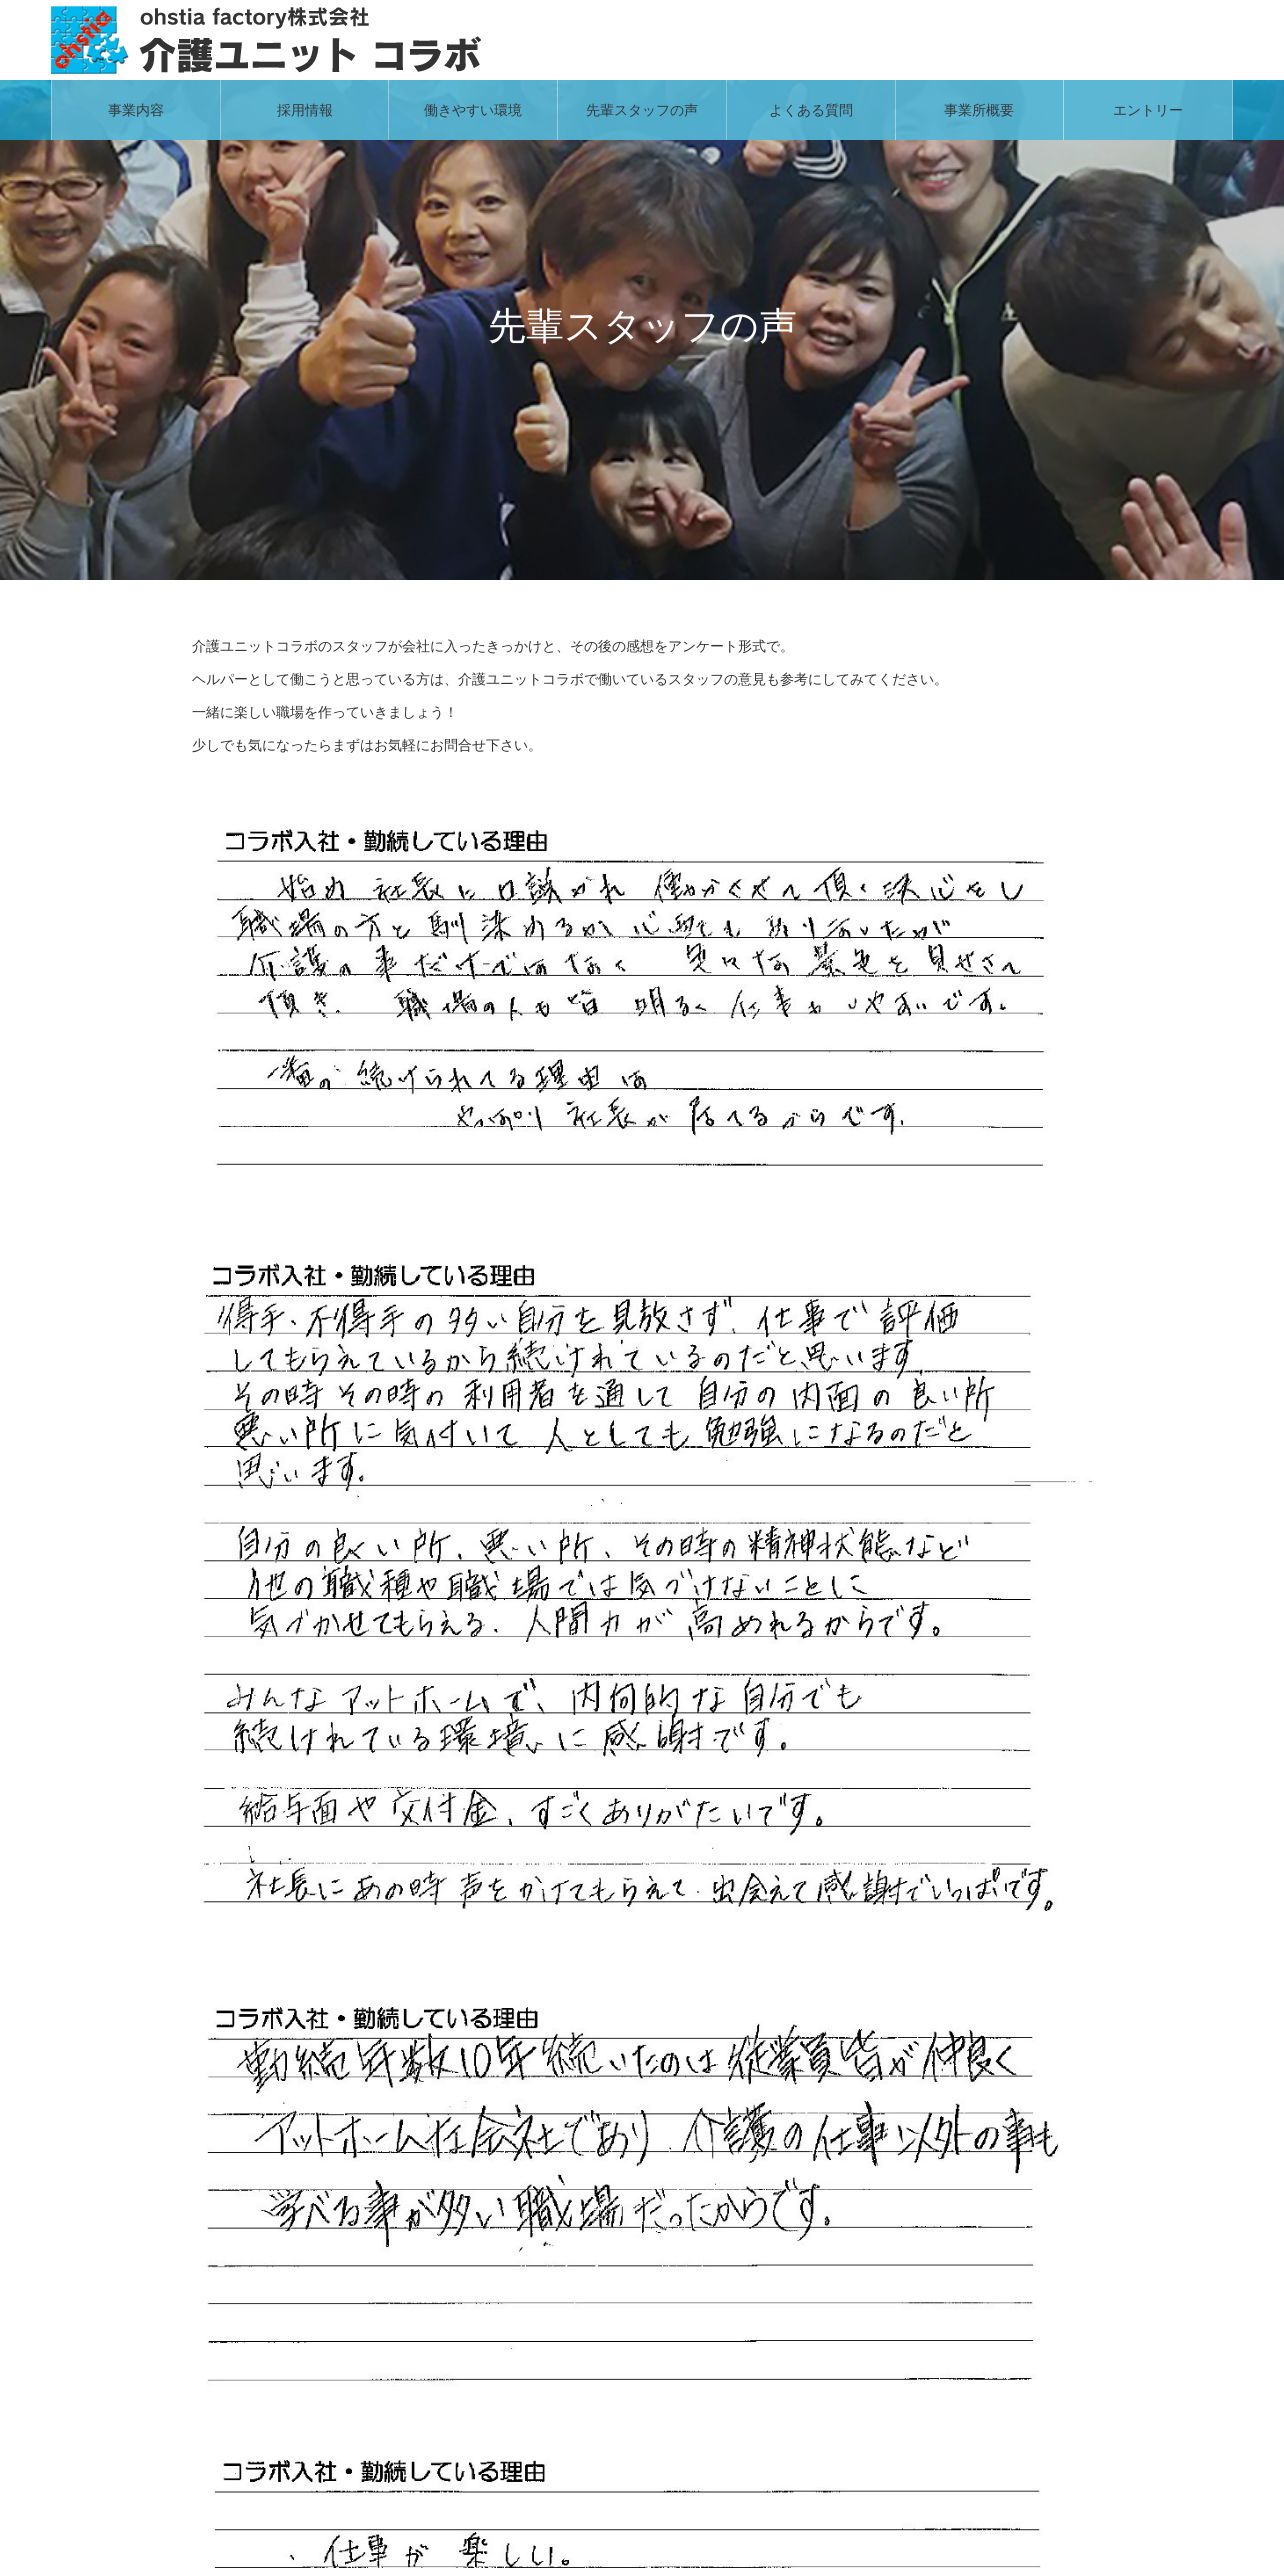 ohstia
ohstia factory株式会社
介護ユニット コラボ
事業内容
採用情報
働きやすい環境
先輩スタッフの声
よくある質問
事業所概要
エントリー
先輩スタッフの声
介護ユニットコラボのスタッフが会社に入ったきっかけと、その後の感想をアンケート形式で。
ヘルパーとして働こうと思っている方は、介護ユニットコラボで働いているスタッフの意見も参考にしてみてください。
一緒に楽しい職場を作っていきましょう！
少しでも気になったらまずはお気軽にお問合せ下さい。
コラボ入社・勤続している理由
始め 社長に口説かれ 働かくせて頂く決心をし
職場の方と馴染めるか心配も有り
介護の事だけではなく 色々な景色を見せさて
頂き、職場の人も皆 明るく仕事もしやすいです。
一番の続けられてる理由は
やっぱり 社長が居てるからです。
コラボ入社・勤続している理由
得手、不得手の多い自分を見放さず、仕事で評価
してもらえているから続けれているのだと思います。
その時その時の利用者を通して自分の内面の良い所
悪い所に気付いて人としても勉強になるのだと
思います。
自分の良い所、悪い所、その時の精神状態など
他の職種や職場では気づけないことに
気づかせてもらえる、人間力が高めれるからです。
みんなアットホームで、内向的な自分でも
続けれている環境に感謝です。
給与面や交付金、すごくありがたいです。
社長にあの時声をかけてもらえて、出会えて感謝でいっぱいです。
コラボ入社・勤続している理由
勤続年数10年続いたのは従業員皆が仲良く
アットホームな会社であり、介護の仕事以外の事も
学べる事が多い職場だったからです。
コラボ入社・勤続している理由
、仕事が楽しい。